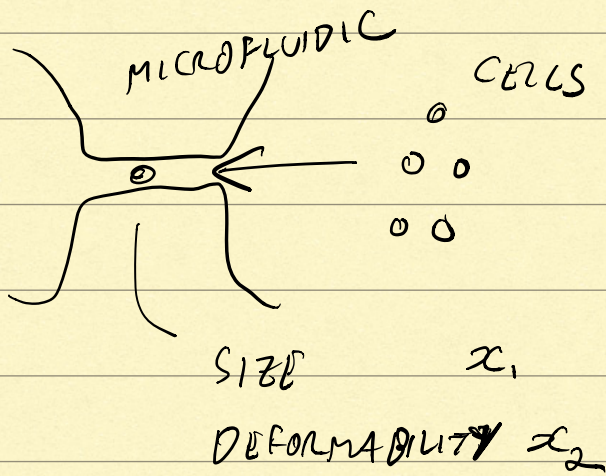 MICROFLUIDIC
CELLS
SIZE x₁
DEFORMABILITY x₂